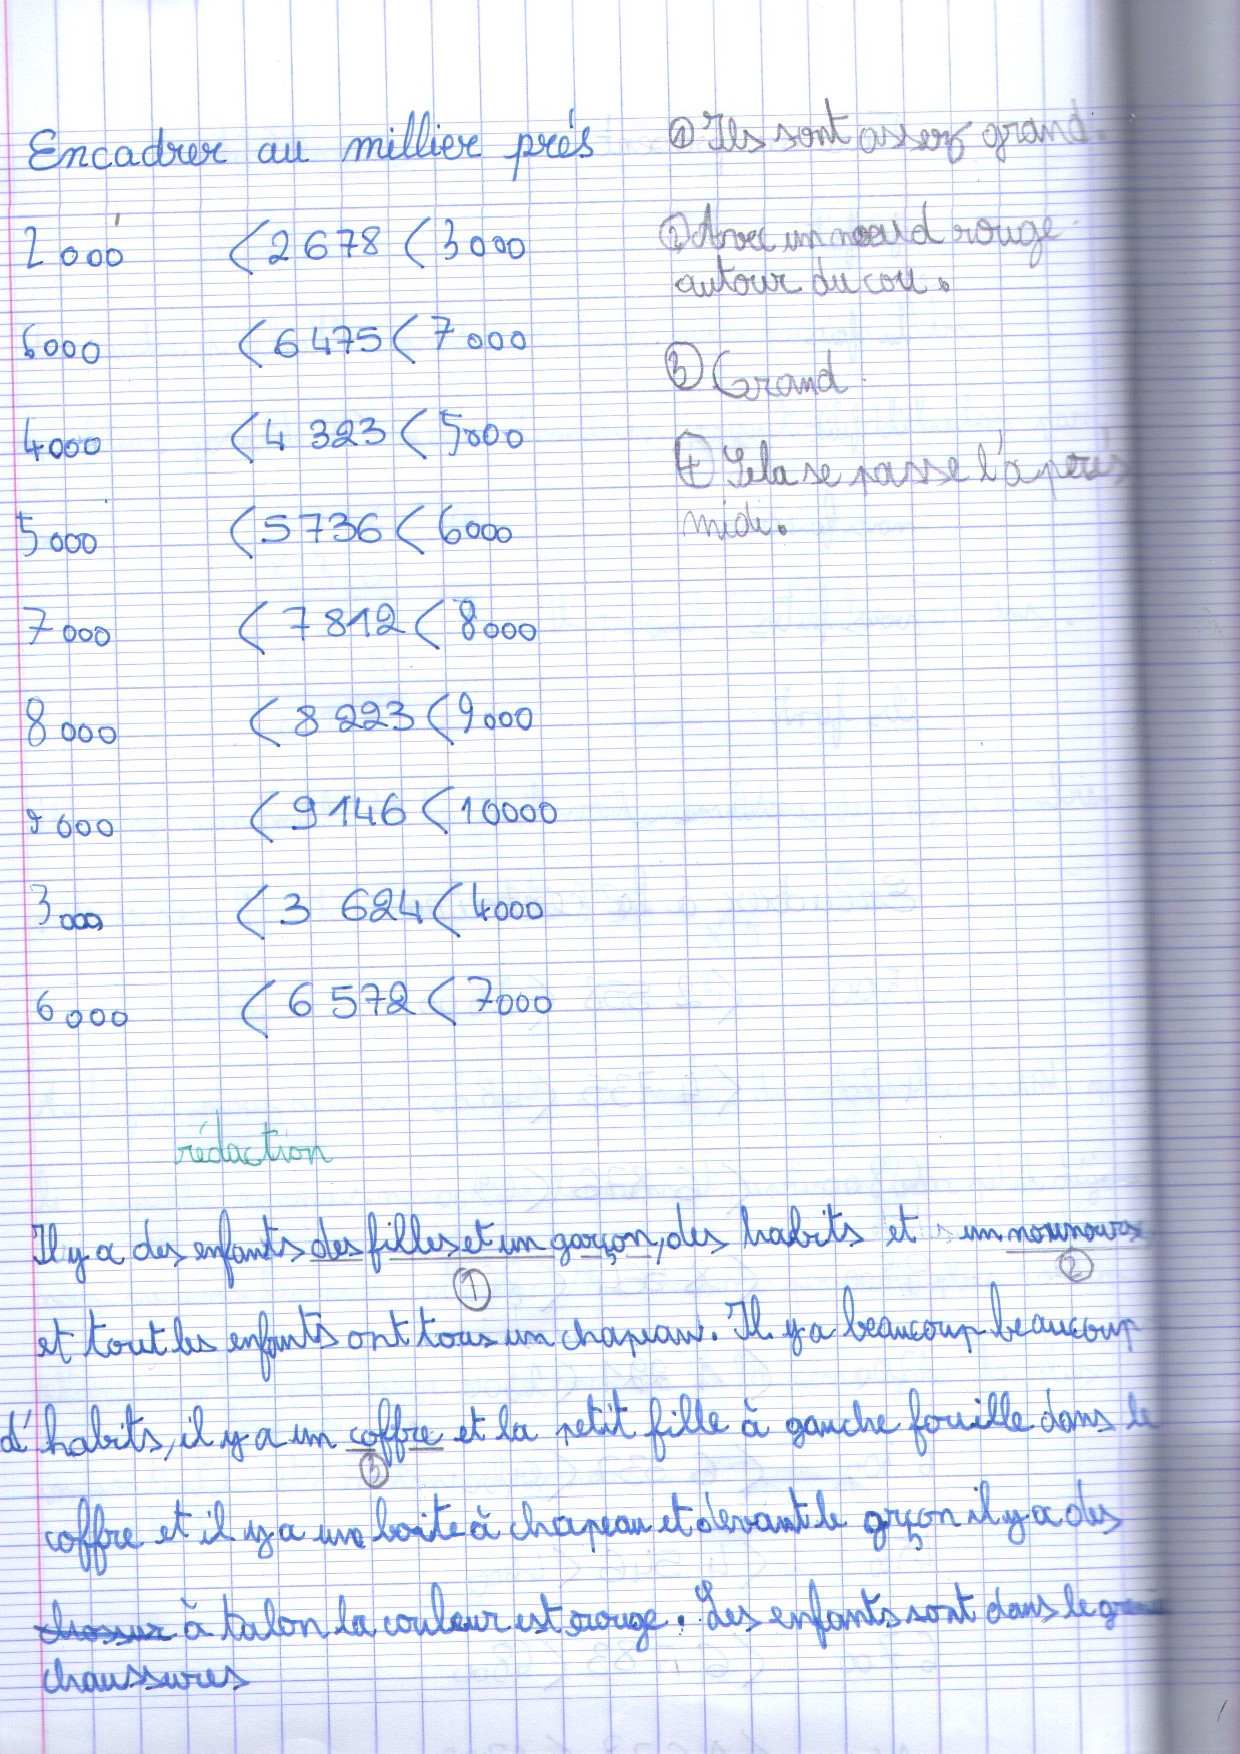 Encadrer au millier près
2 000 < 2 678 < 3 000
6000 < 6 475 < 7 000
4000 < 4 323 < 5000
5 000 < 5 736 < 6000
7 000 < 7 812 < 8000
8 000 < 8 223 < 9 000
9 000 < 9 146 < 10000
3 000 < 3 624 < 4000
6 000 < 6 572 < 7000
① Ils sont assez grand.
② Avec un nœud rouge
autour du cou.
③ Grand.
④ Cela se passe l'après
midi.
rédaction
Il y a des enfants des filles et un garçon, des habits et un nounours
① ②
et tout les enfants ont tous un chapeau. Il y a beaucoup beaucoup
d'habits, il y a un coffre et la petit fille à gauche fouille dans le
③
coffre et il y a une boite à chapeau et devant le grçon il y a des
à talon la couleur est rouge. Les enfants sont dans le
chaussures